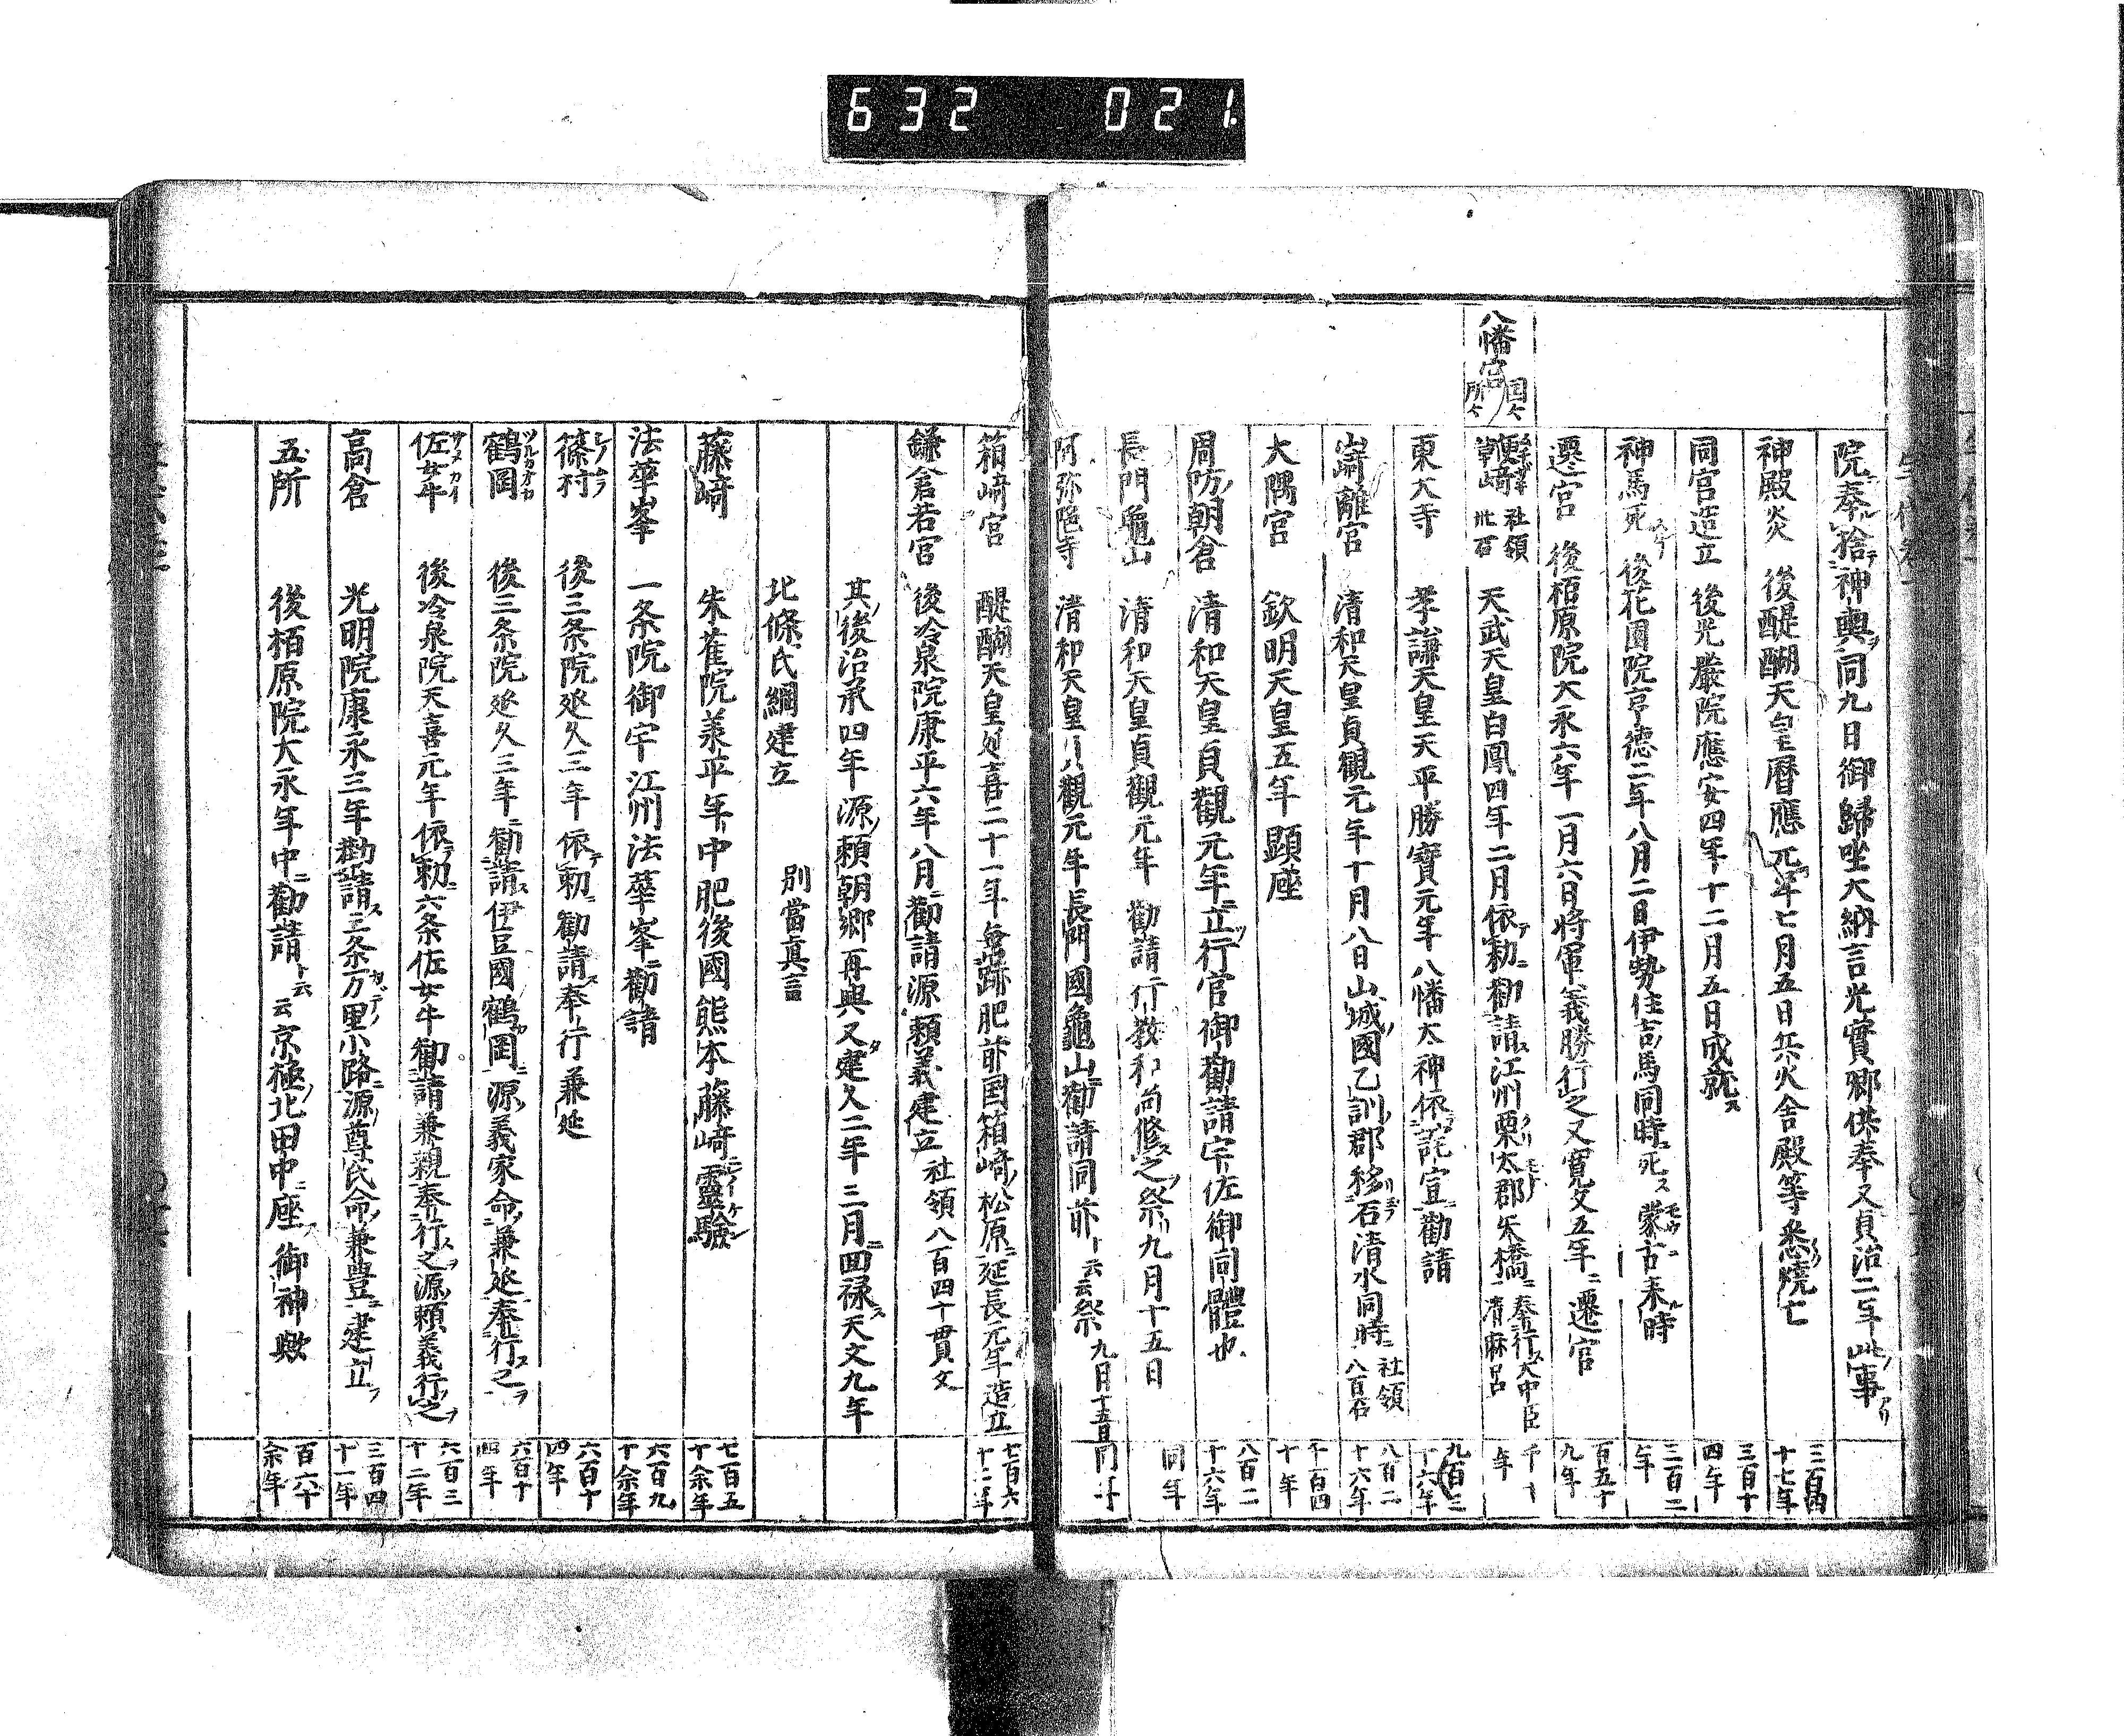 632 021.
院奉捨神輿同九日御歸坐大納言光實卿供奉又貞治二年此事
神殿炎 後醍醐天皇暦應元年七月五日兵火舎殿等悉燒亡 三百四十七年
同宮造立 後光嚴院應安四年十二月五日成就ス 三百十四年
神馬死 後花園院亨徳二年八月二日伊勢住吉馬同時ニ死ス蒙古来ル時 三百二年
遷宮 後栢原院大永六年一月六日将軍義勝行之又寛文五年ニ遷宮 百五十九年
八幡宮 国々所々
鞆崎 社領卅石 天武天皇白鳳四年二月依テ勅ニ勧請ス江州栗太郡矢橋ニ奉行大中臣清麻呂
東大寺 孝謙天皇天平勝寶元年八幡大神依託宣勧請 九百三十六年
崎離宮 清和天皇貞観元年十月八日山城國乙訓郡移石清水同時ニ 社領八百石 八百二十六年
大隅宮 欽明天皇五年顕座 千百四十年
周防朝倉 清和天皇貞観元年ニ立行宮御勧請宇佐御同體也 八百二十六年
長門亀山 清和天皇貞觀元年勧請行教和尚修之祭九月十五日 同年
阿弥陀寺 清和天皇貞観元年長門國龜山勧請同前ト云云祭九月十五日 同年
箱崎宮 醍醐天皇延喜二十一年垂跡肥前国箱崎松原ニ延長元年造立 七百六十二年
鎌倉若宮 後冷泉院康平六年八月ニ勧請源頼義建立 社領八百四十貫文
其後治承四年源頼朝郷再興又建久二年三月ニ回禄ス天文九年
北條氏綱建立 別當真言
藤崎 朱雀院羕平年中肥後國熊本藤崎ニ靈驗 七百五十余年
法華峯 一条院御宇江州法華峯ニ勧請 六百九十余年
篠村 後三条院延久三年依テ勅ニ勧請ス奉行兼延 六百十四年
鶴岡 後三条院延久三年ニ勧請ス伊豆國鶴岡ニ源義家命兼延奉行ス之ヲ 六百十四年
佐女牛 後冷泉院天喜元年依テ勅ニ六条佐女牛勧請兼親奉行ス之ヲ源頼義行之ヲ 六百三十二年
高倉 光明院康永三年勧請ス三条万里小路ニ源尊氏命兼豊ニ建立ヲ 三百四十一年
五所 後栢原院大永年中ニ勧請ト云云京極北田中ニ座ス御神歟 百六十余年